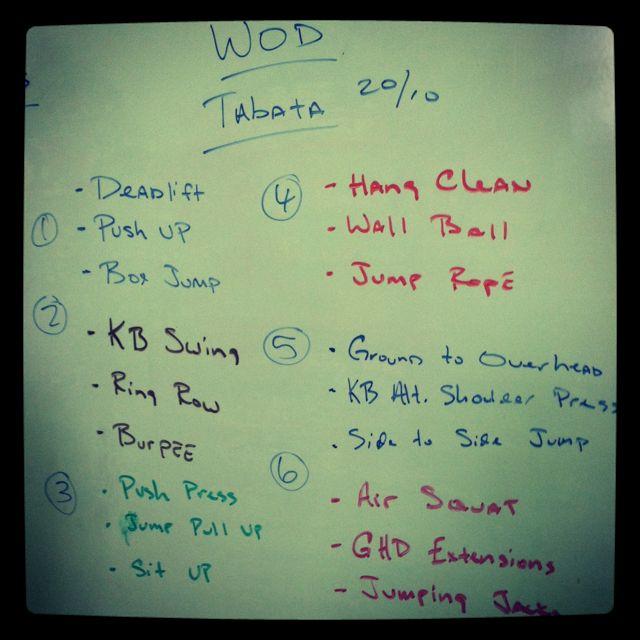 WOD
Tabata 20/10
① - Deadlift
- Push up
- Box Jump
② - KB Swing
- Ring Row
- Burpee
③ - Push Press
- Jump Pull up
- Sit up
④ - Hang Clean
- Wall Ball
- Jump Rope
⑤ - Ground to Overhead
- KB Alt. Shoulder Press
- Side to Side Jump
⑥ - Air Squat
- GHD Extensions
- Jumping Jacks